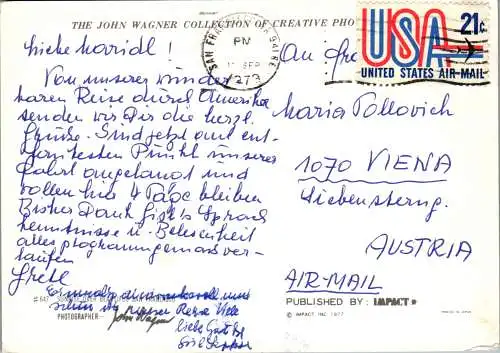 THE JOHN WAGNER COLLECTION OF CREATIVE PHO
SAN FRA
PM
SEP
1973
USA 21¢
UNITED STATES AIR MAIL
Von unserer wunder
baren Reise durch Amerika
senden wir Dir die herzl.
Grüße. Sind jetzt am ent-
ferntesten Punkt unserer
Fahrt angelangt und
wollen hier 4 Tage bleiben
Bisher Dank Gisels Sprach
kenntnisse u. Belesenheit
alles programmgemäss ver-
laufen
Grete
An
Maria
1070 VIENA
Siebensterng.
AUSTRIA
AIR-MAIL
PHOTOGRAPHER— John Wagner
Reise Viele
liebe Grüße
PUBLISHED BY: IMPACT
© IMPACT, INC. 1971